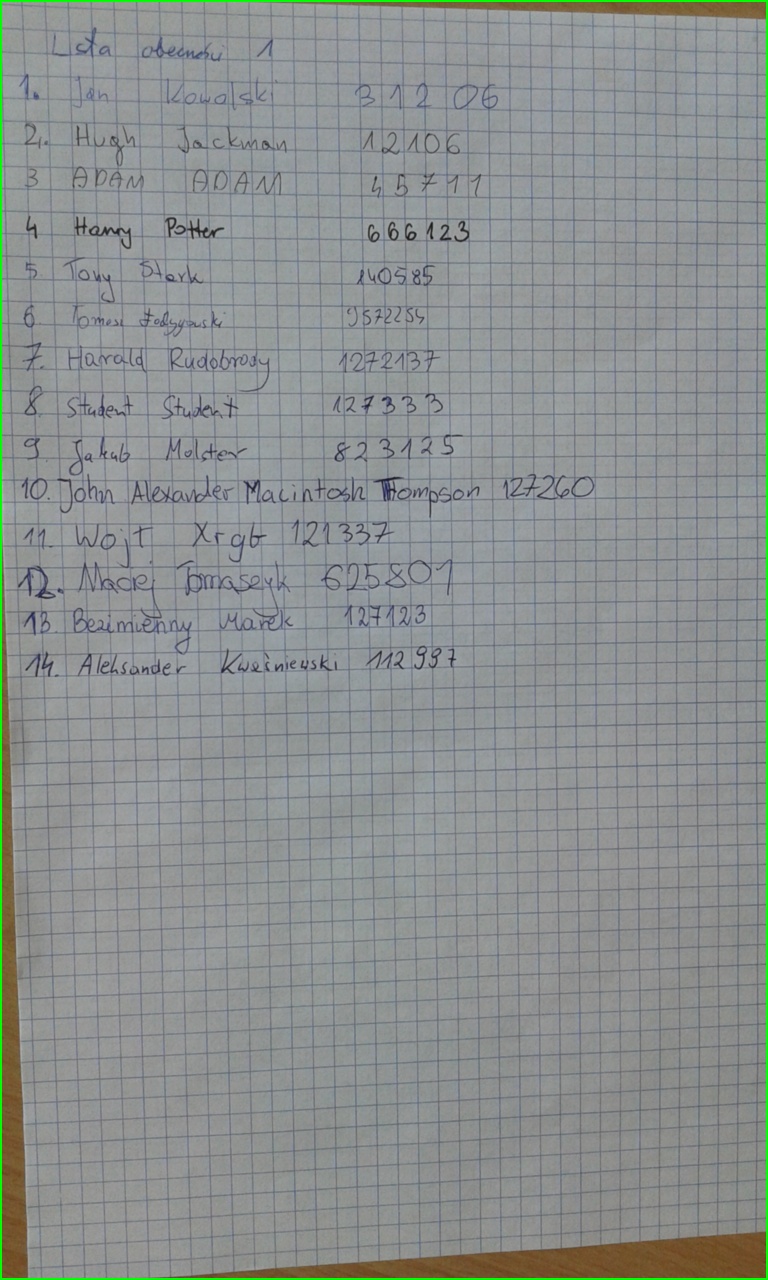 Lista obecności 1
1. Jan Kowalski 31206
2. Hugh Jackman 12106
3 ADAM ADAM 45711
4 Harry Potter 666123
5 Tony Stark 140585
6 Tomasz 9572254
7. Harald Rudobrody 1272137
8. Student Student 127333
9. Jakub Molster 823125
10. John Alexander Macintosh Thompson 127260
11. Wojt Xrgb 121337
12. Maciej Tomaszyk 625801
13. Bezimienny Marek 127123
14. Aleksander Kwaśniewski 112997